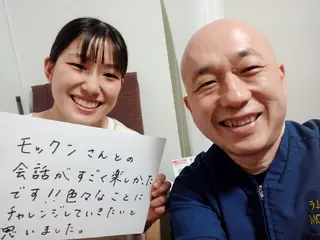 モックンさんとの
会話がすごく楽しかた
です!!色々なことに
チャレンジしていきたいと
思いました。
ラム
MO